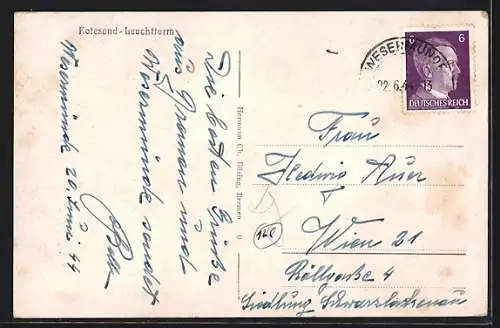 Rotesand-Leuchtturm
Die besten Grüße
aus Bremen und
Wesermünde sendet
Wesermünde 20. Juni 44
Hermann Ch. Büsing, Bremen
WESERMÜNDE
22.6.44
6
6
DEUTSCHES REICH
Frau
Hedwig Auer
Wien 21
4
Siedlung Schwarzlackenau
140